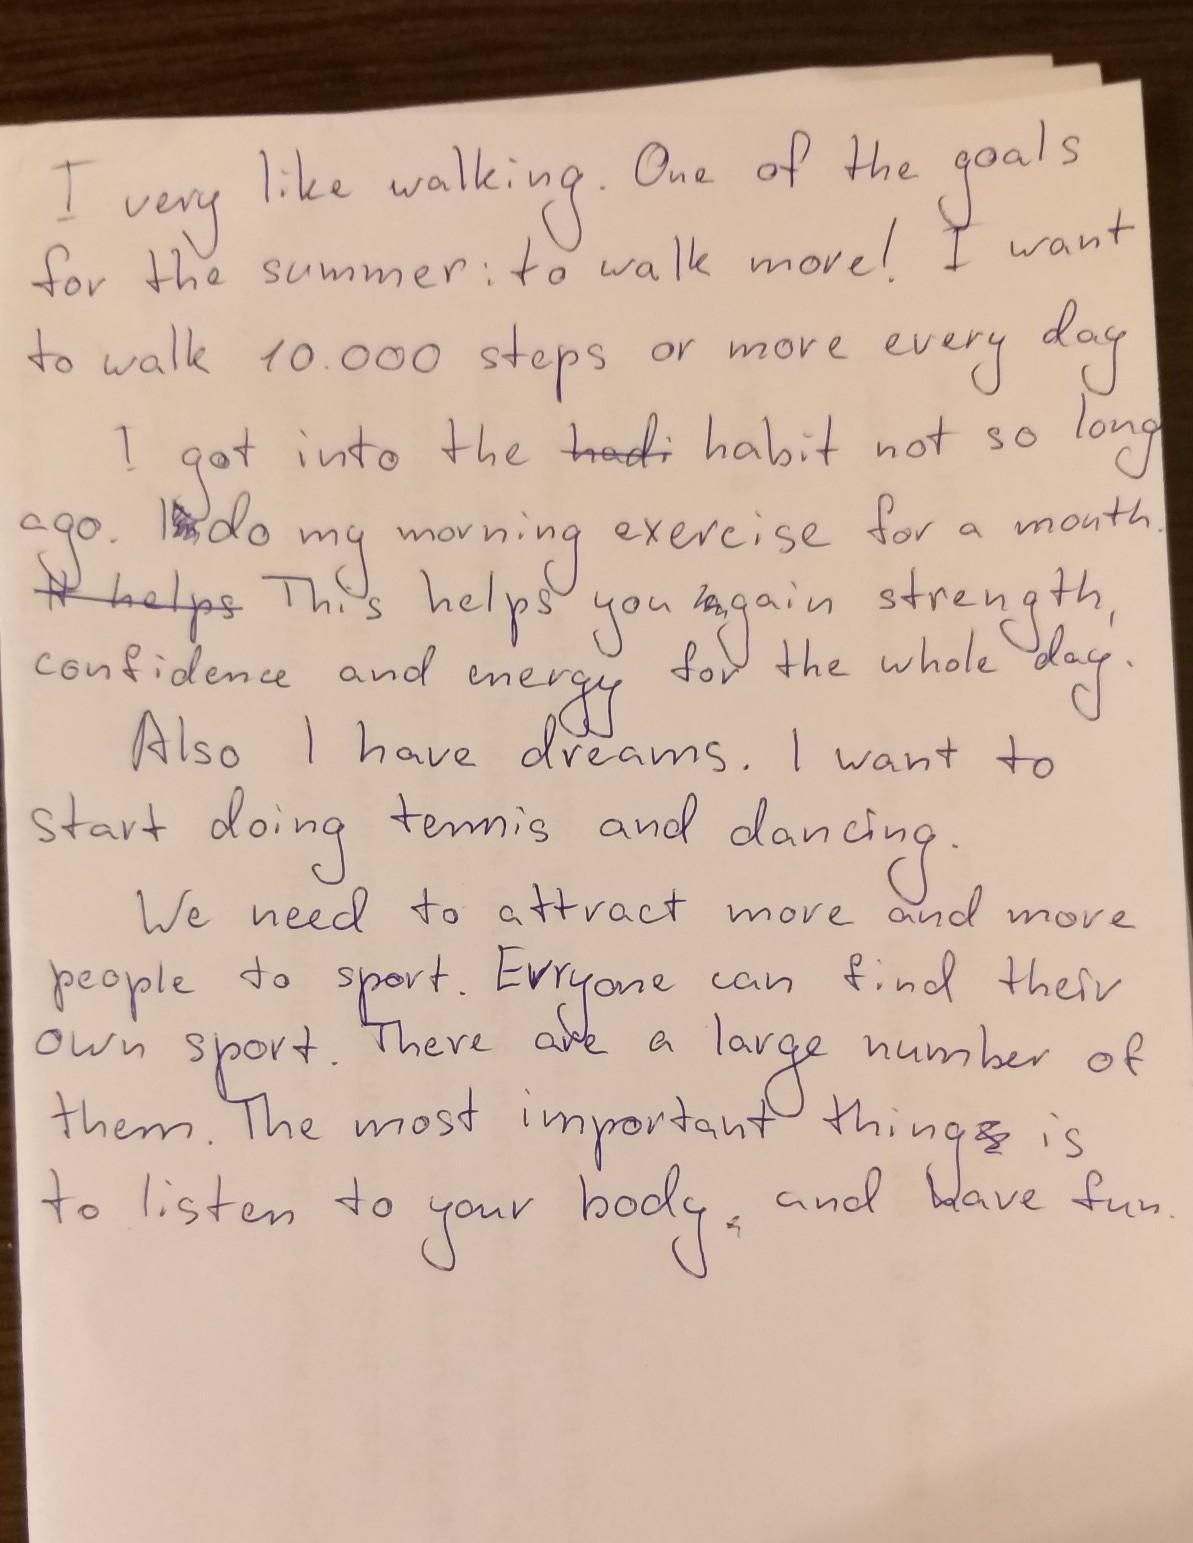 I very like walking. One of the goals
for the summer: to walk more! I want
to walk 10.000 steps or more every day
I got into the hadi habit not so long
ago. I do my morning exercise for a month.
It helps This helps you gain strength,
confidence and energy for the whole day.
Also I have dreams. I want to
start doing tennis and dancing.
We need to attract more and more
people to sport. Evryone can find their
own sport. There are a large number of
them. The most important thing is
to listen to your body, and have fun.